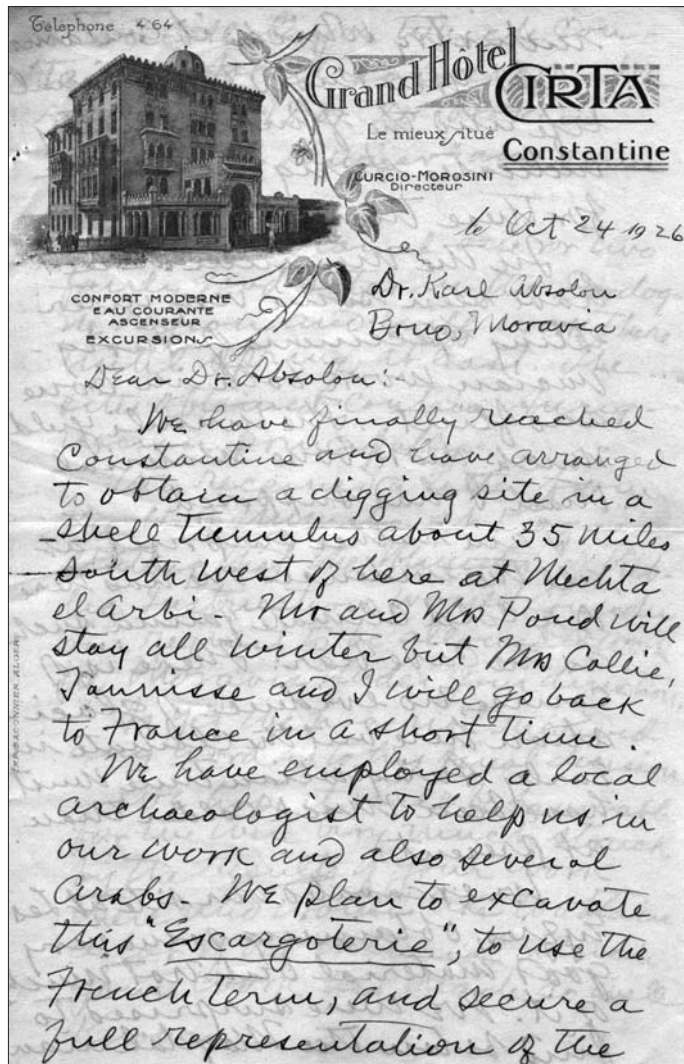 Téléphone 4.64
Grand Hôtel
CIRTA
Le mieux situé
Constantine
CURCIO-MOROSINI
Directeur
le Oct 24 1926
CONFORT MODERNE
EAU COURANTE
ASCENSEUR
EXCURSIONS
Dr. Karl Absolon
Brno, Moravia
Dear Dr. Absolon:
We have finally reached
Constantine and have arranged
to obtain a digging site in a
shell tumulus about 35 miles
south west of here at Mechta
el Arbi - Mr and Mrs Pond will
stay all winter but Mrs Collie,
Tannisse and I will go back
to France in a short time.
We have employed a local
archaeologist to help us in
our work and also several
Arabs - We plan to excavate
this "Escargoterie", to use the
French term, and secure a
full representation of the